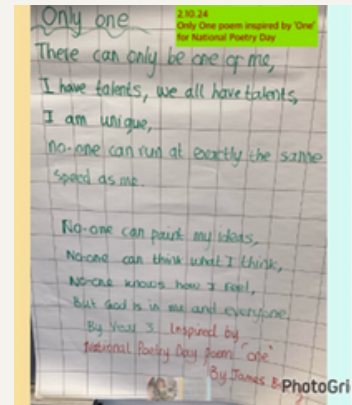 Only one
2.10.24
Only One poem inspired by 'One'
for National Poetry Day
There can only be one of me,
I have talents, we all have talents,
I am unique,
no-one can run at exactly the same
speed as me.
No-one can paint my ideas,
No-one can think what I think,
No-one knows how I feel,
But God is in me and everyone.
By Year 3. Inspired by
National Poetry Day poem "one"
By James
PhotoGri